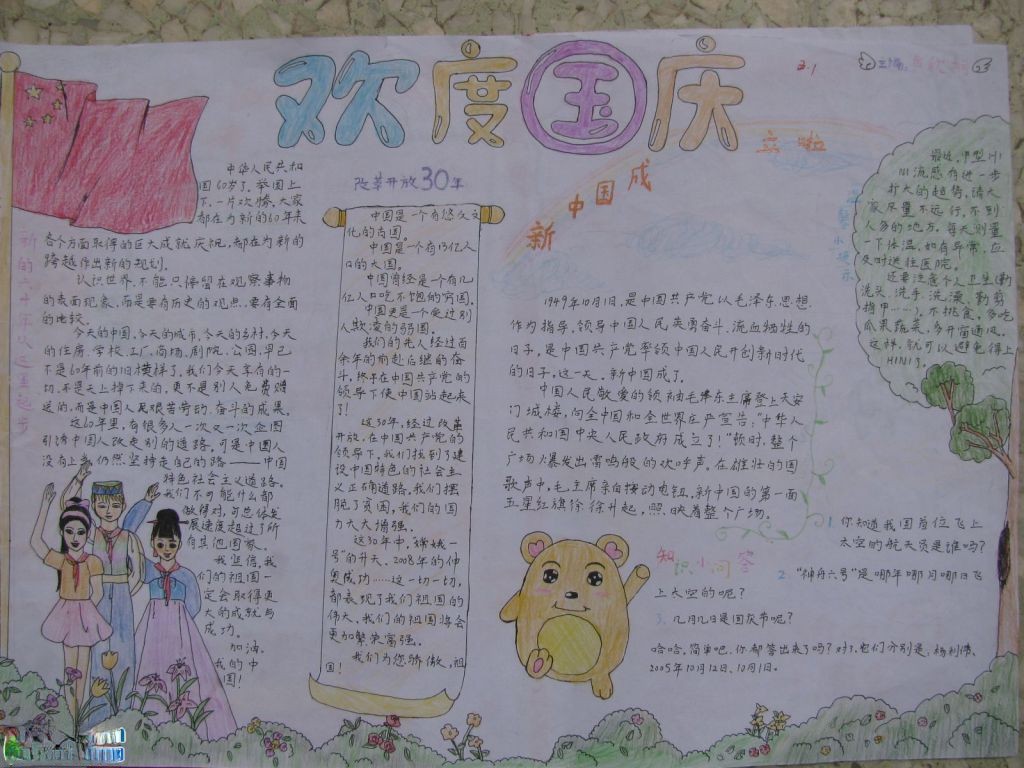 欢度国庆
主编:
中华人民共和
国60岁了。举国上
下,一片欢腾。大家
都在为新的60年来
各个方面取得的巨大成就庆祝,都在为新的
跨越作出新的规划。
认识世界,不能只停留在观察事物
的表面现象,而是要有历史的观点,要有全面
的比较。
今天的中国,今天的城市,今天的乡村,今天
的住房、学校、工厂、商场、剧院、公园,早已
不是60年前的旧模样了。我们今天享有的一
切,不是天上掉下来的,更不是别人免费赠
送的,而是中国人民艰苦劳动、奋斗的成果。
这60年里,有很多人一次又一次企图
引诱中国人改走别的道路,可是中国人
没有上当,仍然坚持走自己的路——中国
特色社会主义道路。
我们不可能什么都
做得对,可总体发
展速度超过了所
有其他国家。
我坚信,我
们的祖国一
定会取得更
大的成就与
成功。
加油,
我的中
国!
改革开放30年
中国是一个有悠久文
化的古国。
中国是一个有13亿人
口的大国。
中国曾经是一个有几
亿人口吃不饱的穷国。
中国更是一个受过别
人欺凌的弱国。
我们的先人经过百
余年的前赴后继的奋
斗,终于在中国共产党的
领导下使中国站起来
了!
这30年,经过改革
开放,在中国共产党的
领导下,我们找到了建
设中国特色的社会主
义正确道路。我们摆
脱了贫困,我们的国
力大大增强。
这30年中,“嫦娥一
号”的升天、2008年的伸
奥成功……这一切一切,
都表现了我们祖国的
伟大。我们的祖国将会
更加繁荣富强。
我们为您骄傲,祖
国!
新中国成立啦
1949年10月1日,是中国共产党以毛泽东思想
作为指导,领导中国人民英勇奋斗、流血牺牲的
日子,是中国共产党率领中国人民开创新时代
的日子。这一天,新中国成了。
中国人民敬爱的领袖毛泽东主席登上天安
门城楼,向全中国和全世界庄严宣告:“中华人
民共和国中央人民政府成立了!”顿时,整个
广场爆发出雷鸣般的欢呼声。在雄壮的国
歌声中,毛主席亲自按动电钮,新中国的第一面
五星红旗徐徐升起,照映着整个广场。
最近,甲型H1
N1流感有进一步
扩大的趋势,请大
家尽量不远行,不到
人多的地方。每天测量
一下体温,如有异常,应
及时送往医院。
还要注意个人卫生(勤
洗头、洗手、洗澡、勤剪
指甲……),不挑食,多吃
瓜果蔬菜,多开窗通风。
这样,就可以避免得上
H1N1了。
知识小问答
1. 你知道我国首位飞上
太空的航天员是谁吗?
2. “神舟六号”是哪年哪月哪日飞
上太空的呢?
3. 几月几日是国庆节呢?
哈哈,简单吧,你都答出来了吗?对了,它们分别是:杨利伟、
2005年10月12日、10月1日。